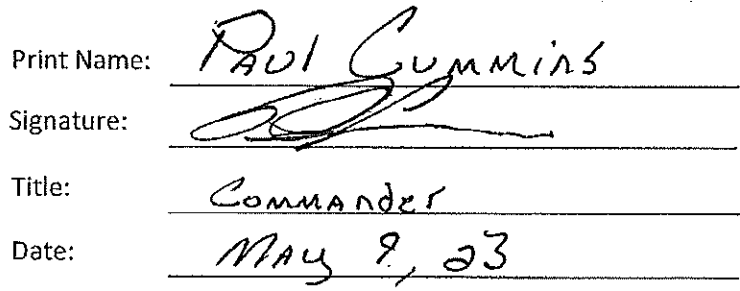 Print Name: Paul Cummins
Signature:
Title: Commander
Date: May 9, 23